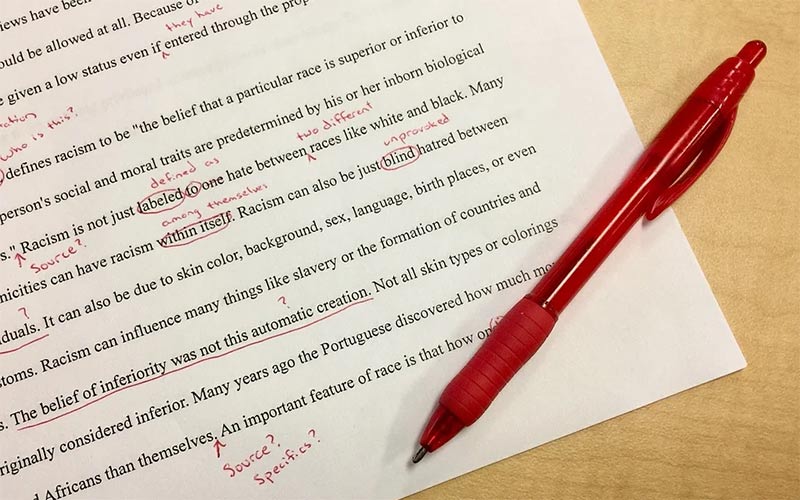 iews have been
ould be allowed at all. Because o
they have
e given a low status even if entered through the prop
person's social and moral traits are predetermined by his or her inborn biological
who is this?
defines racism to be "the belief that a particular race is superior or inferior to
two different
unprovoked
defined as
s." Racism is not just labeled to one hate between races like white and black. Many
Source?
among themselves
nicities can have racism within itself. Racism can also be just blind hatred between
?
iduals. It can also be due to skin color, background, sex, language, birth places, or even
?
stoms. Racism can influence many things like slavery or the formation of countries and
s. The belief of inferiority was not this automatic creation. Not all skin types or colorings
riginally considered inferior. Many years ago the Portuguese discovered how much mo
d Africans than themselves. An important feature of race is that how on
Source?
Specifics?